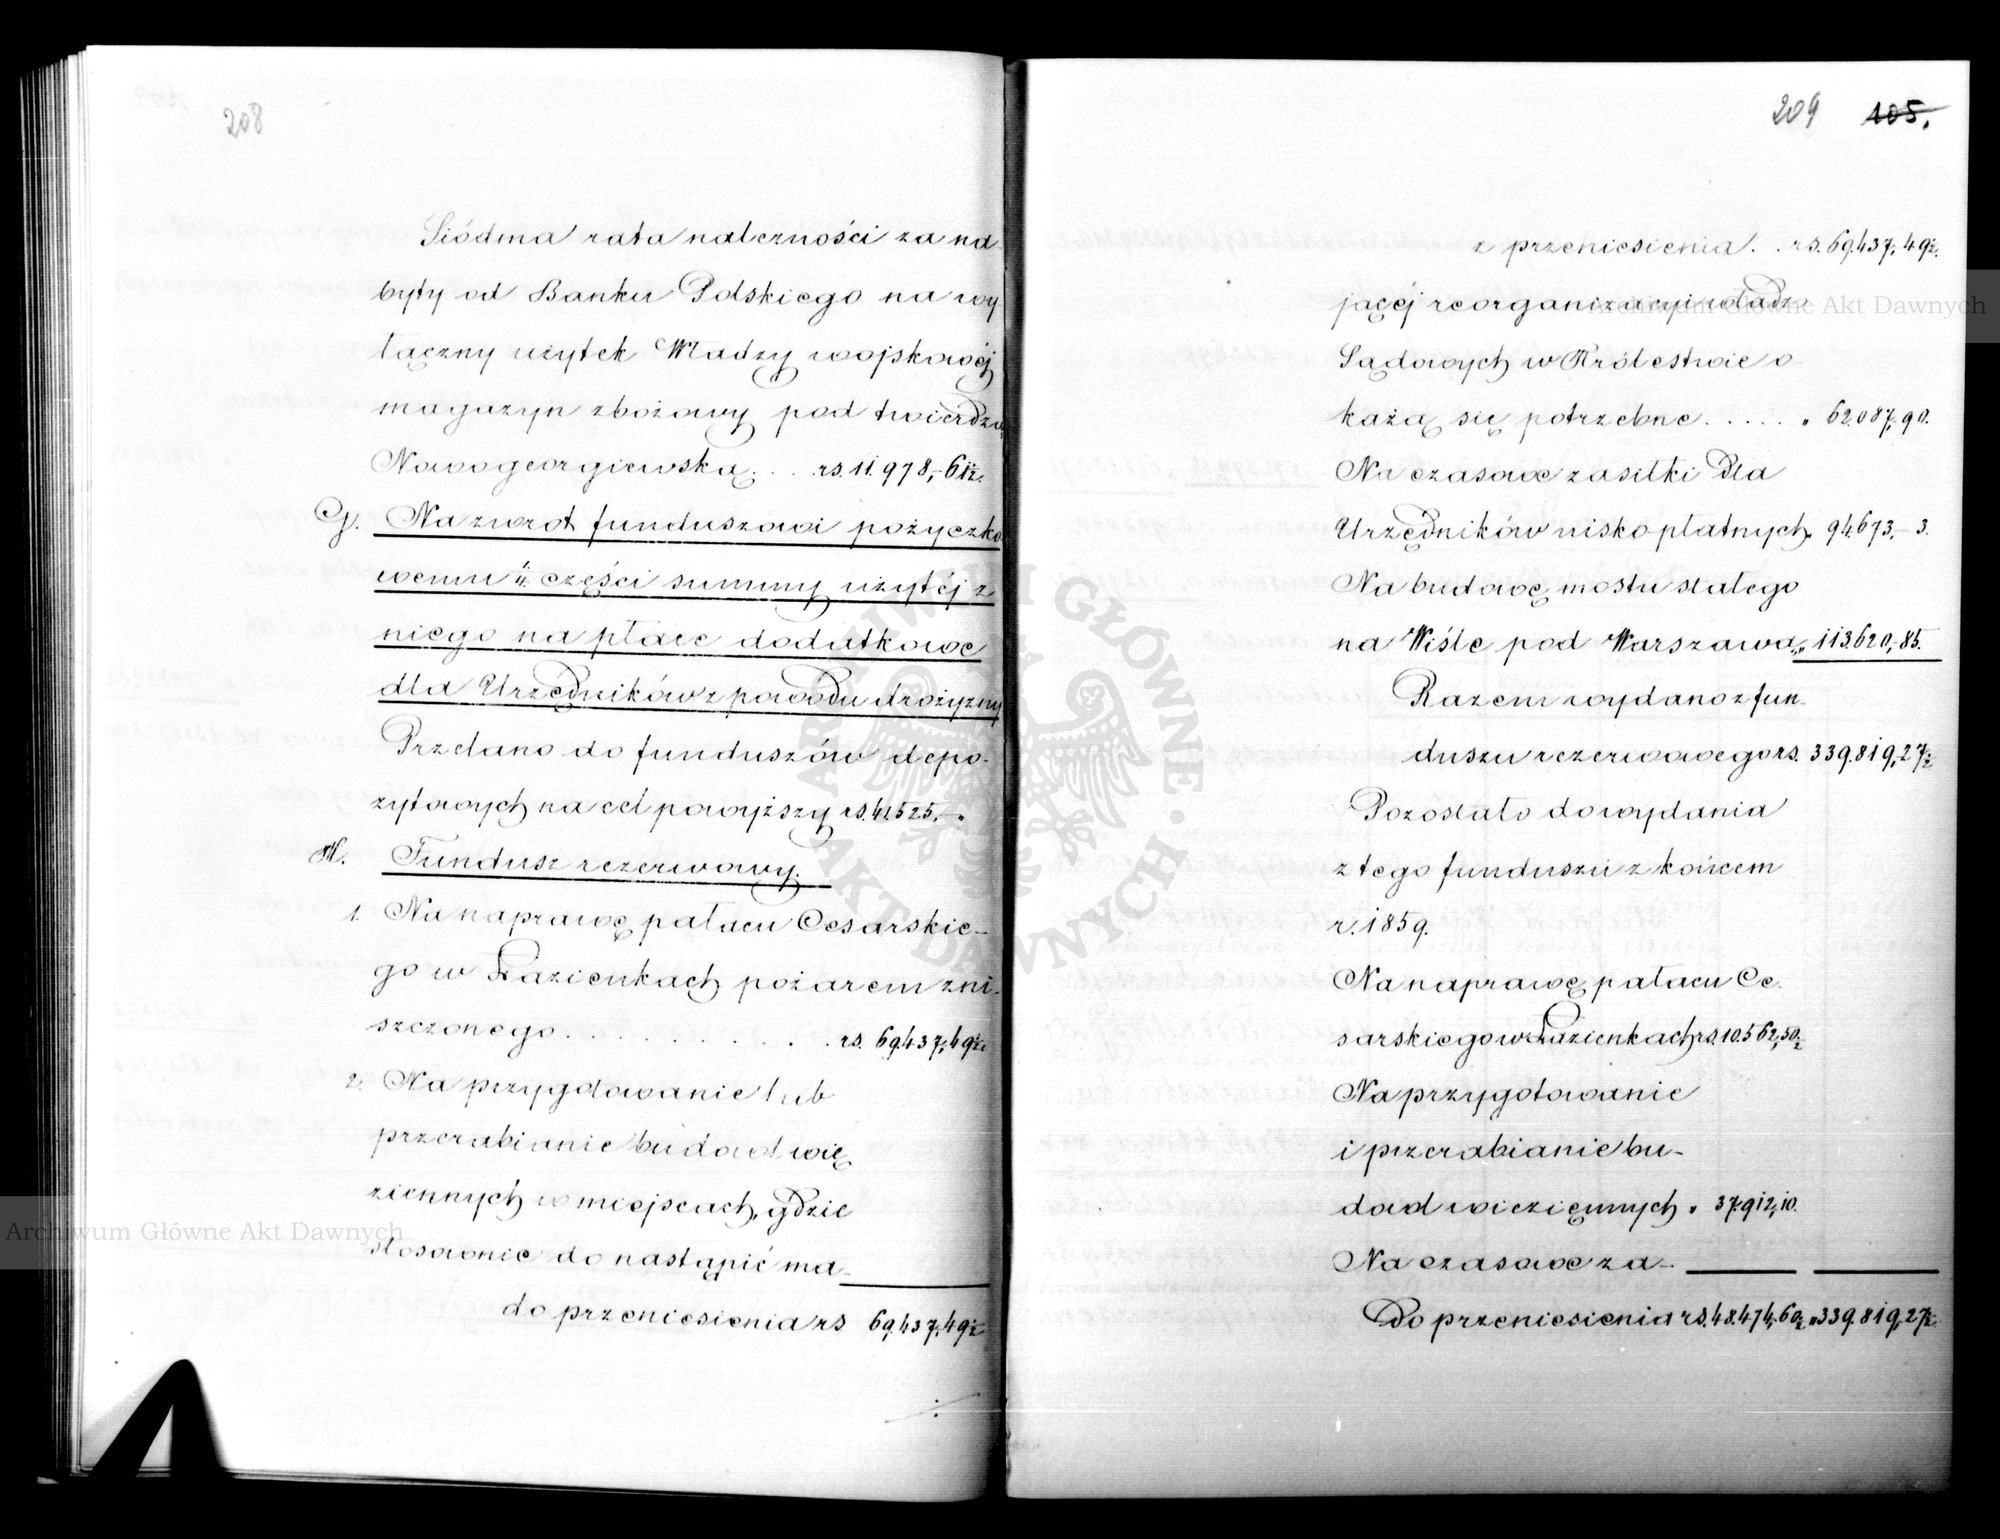 208
Siódma rata należności za na-
byty od Banku Polskiego na wy
łączny użytek Władzy wojskowéj
magazyn zbożowy pod twierdzą
Nowogeorgiewską . . . rs. 11.978,-61½.
G. Na zwrot funduszowi pożyczko
wemu części summy użytéj z
niego na płace dodatkowe
dla Urzędników z powodu drożyzny
Przelano do funduszów depo-
zytowych na cel powyższy rs. 41.525,-„
H. Fundusz rezerwowy.
1. Na naprawę pałacu Cesarskie-
go w Łazienkach pożarem zni-
szczonego . . . . . . . . . . rs. 69.437,49½.
2. Na przygotowanie lub
przerabianie budowl wię
ziennych w miejscach, gdzie
stosownie do nastąpić ma-
do przeniesienia rs 69.437,49½
209 105.
z przeniesienia . . rs. 69.437,49½.
jącéj reorganizacyi władz
Sądowych w Królestwie o-
każą się potrzebne . . . . . „ 62.087,90.
Na czasowe zasiłki dla
Urzędników nisko płatnych „ 94.673,-3.
Na budowę mostu stałego
na Wiśle pod Warszawą „ 113.620,-85.
Razem wydano z fun-
duszu rezerwowego rs. 339.819,-27½
Pozostało do wydania
z tego funduszu z końcem
r. 1859.
Na naprawę pałacu Ce-
sarskiego w Łazienkach rs. 10.562,50½
Na przygotowanie
i przerabianie bu-
dowl więziennych „ 37.912,10.
Na czasowe za-
Do przeniesienia rs. 48.474,60½ „ 339.819,27½.
Archiwum Główne Akt Dawnych
Archiwum Główne Akt Dawnych
ARCHIWUM GŁÓWNE AKT DAWNYCH